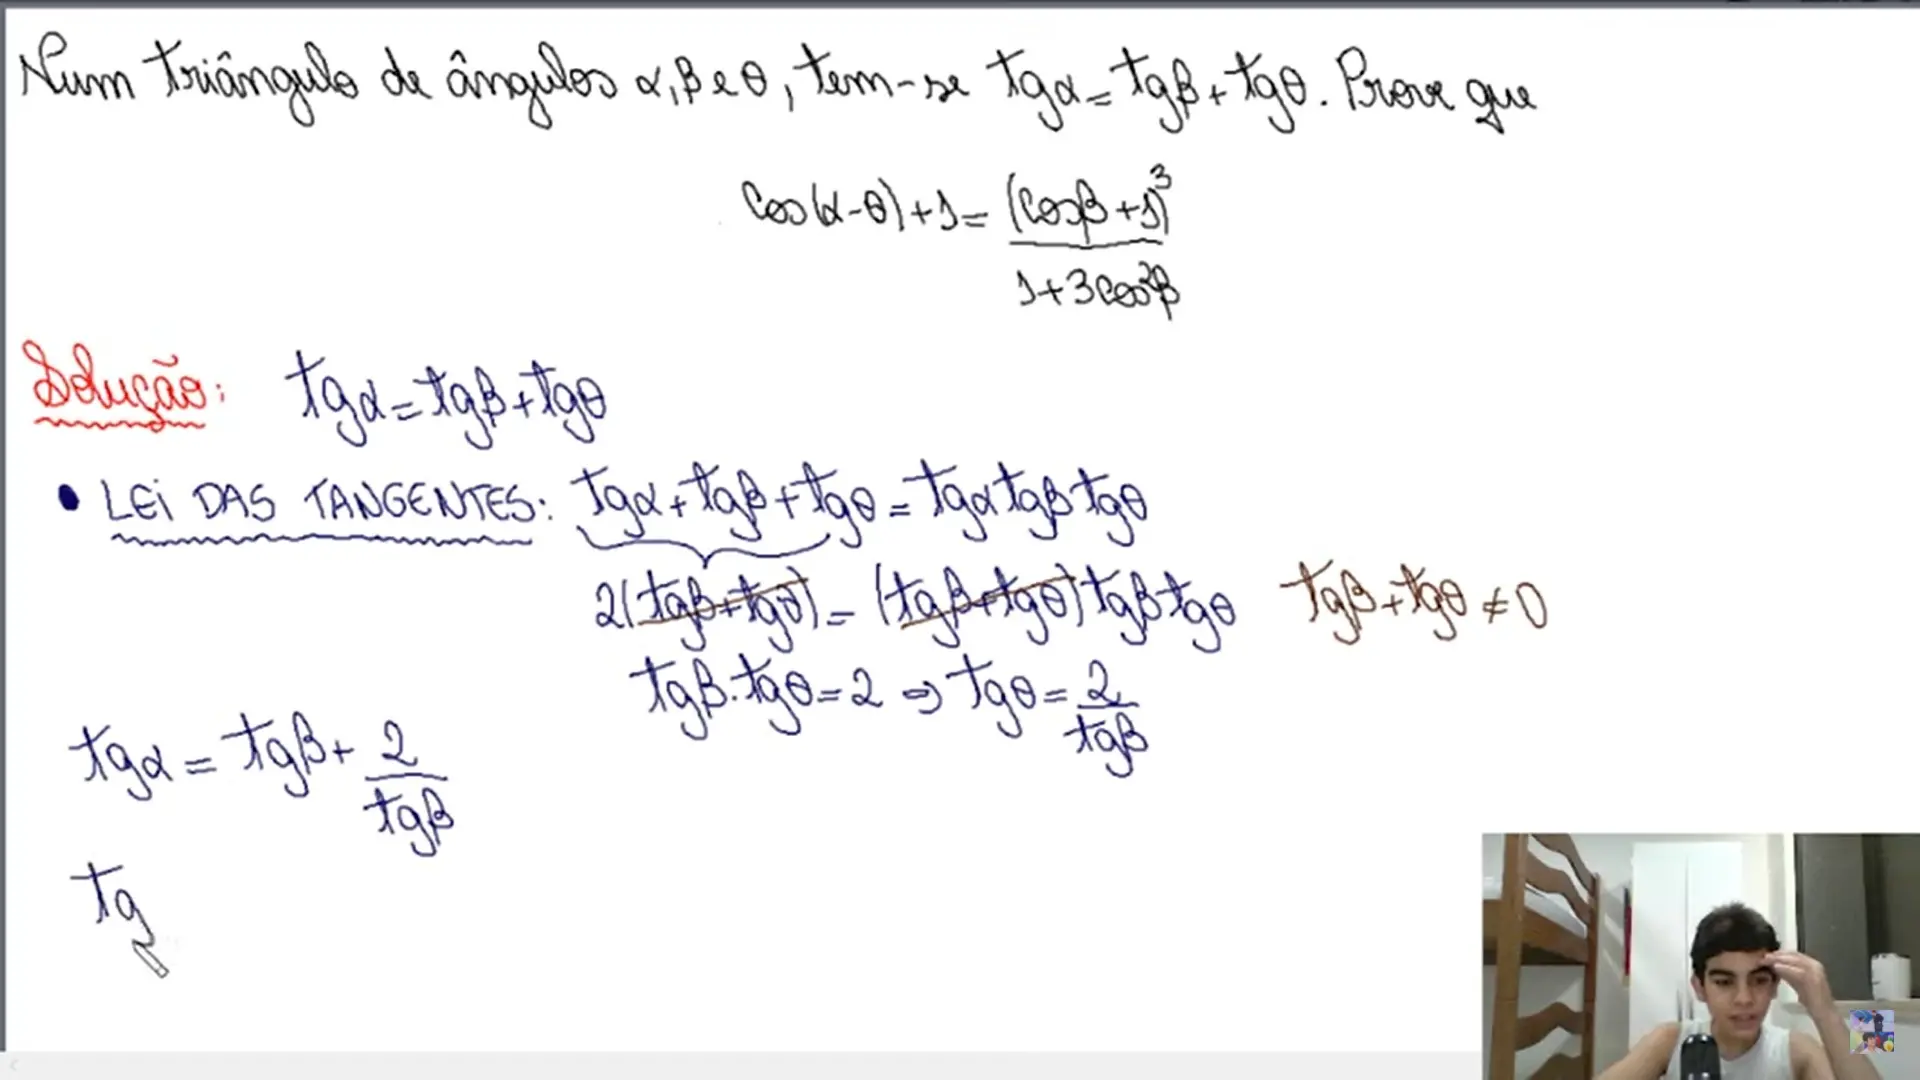 Num triângulo de ângulos α, β e θ, tem-se tgα = tgβ + tgθ. Prove que
cos(α-θ)+1 = (cosβ+1)³
1+3cos²β
Solução: tgα = tgβ + tgθ
• LEI DAS TANGENTES: tgα + tgβ + tgθ = tgα tgβ tgθ
2(tgβ+tgθ) = (tgβ+tgθ) tgβ tgθ tgβ + tgθ ≠ 0
tgβ · tgθ = 2 ⇒ tgθ = 2
tgβ
tgα = tgβ + 2
tgβ
tg